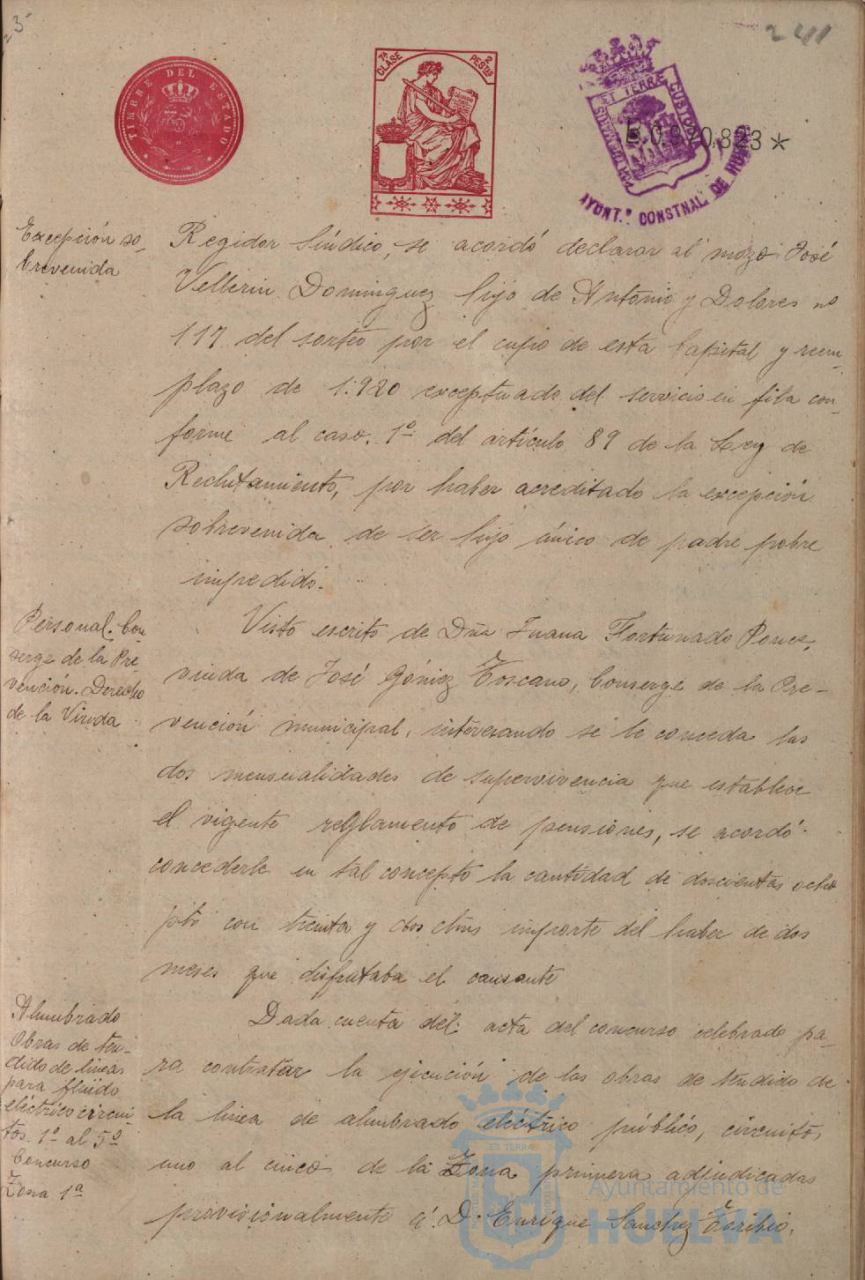 241
TIMBRE DEL ESTADO
7ª CLASE 2 PESETAS
AYUNT.º CONSTNAL DE HUELVA
Excepción so-
brevenida
Regidor Síndico, se acordó declarar al mozo José
Vellerin Dominguez hijo de Antonio y Dolores nº
117 del sorteo por el cupo de esta Capital y reem-
plazo de 1.920 exceptuado del servicio en fila con-
forme al caso 1º del artículo 89 de la Ley de
Reclutamiento, por haber acreditado la excepción
sobrevenida de ser hijo único de padre pobre
impedido.
Personal. Con
serge de la Pre
vención. Derecho
de la Viuda
Visto escrito de Dña Juana Fortunado Ponce,
viuda de José Gómez Toscano, Conserge de la Pre-
vención municipal, interesando se le conceda las
dos mensualidades de supervivencia que establece
el vigente reglamento de pensiones, se acordó
concederle en tal concepto la cantidad de doscientas ocho
ptas con treinta y dos ctms importe del haber de dos
meses que disfrutaba el causante
Alumbrado
Obras de ten-
dido de lineas
para fluido
eléctrico circui-
tos 1º al 5º
Concurso
Zona 1ª
Dada cuenta del acta del concurso celebrado pa-
ra contratar la ejecución de las obras de tendido de
la linea de alumbrado eléctrico público, circuitos
uno al cinco de la Zona primera adjudicadas
provisionalmente á D. Enrique Sanchez Toribio,
Ayuntamiento de
HUELVA